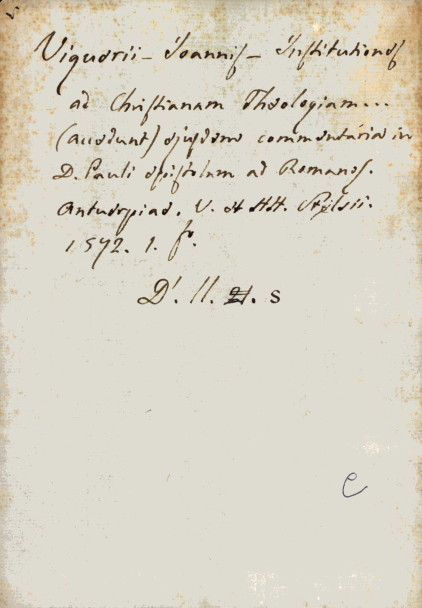 Viguerii – Joannis – Institutiones
ad Christianam Theologiam...
(accedunt) ejusdem commentaria in
D. Pauli epistolam ad Romanos.
Antuerpiae. V. et HH.
1572. 1. fº.
D'. 11. 21. s
e